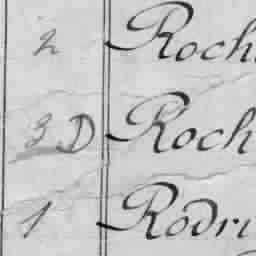 2 Roch
3 D Roch
1 Rodri